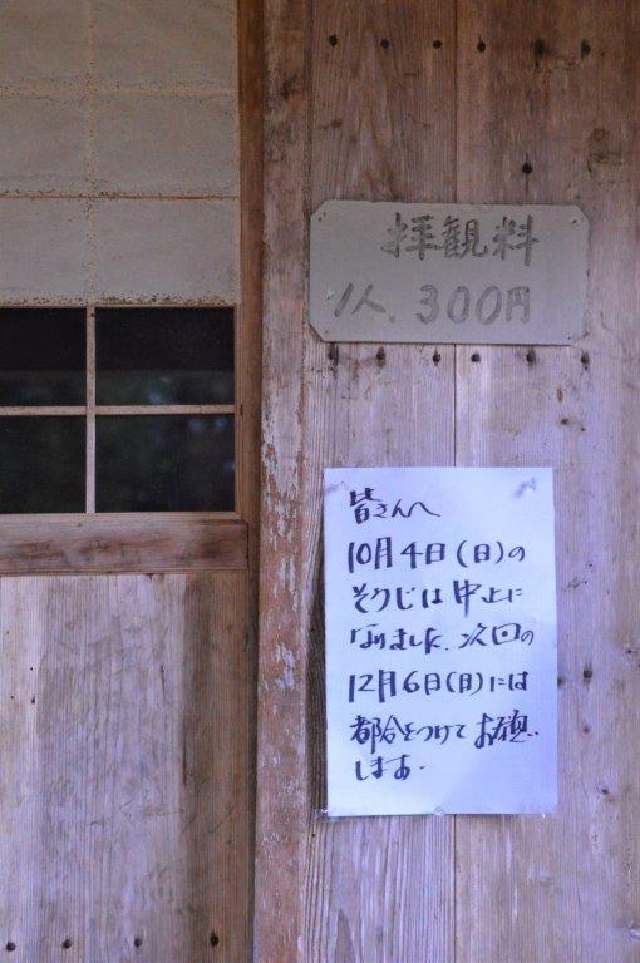 拝観料
1人.300円
皆さんへ
10月4日(日)の
そうじは中止に
なりました.次回の
12月6日(日)には
都合をつけてお願い.
します.